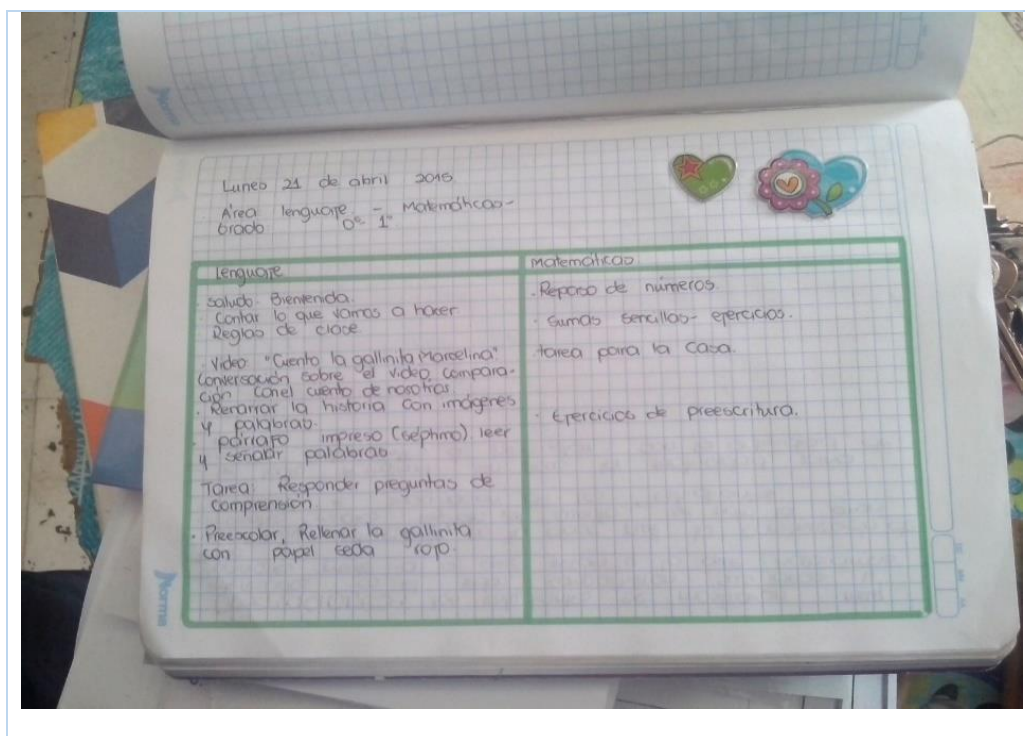 Lunes 21 de abril 2015
Área lenguaje - Matemáticas-
Grado 0° 1°
Lenguaje
. Saludo- Bienvenida.
Contar lo que vamos a hacer
Reglas de clase
. Video "Cuento la gallinita Marcelina"
Conversación sobre el video, compara-
ción con el cuento de nosotros
. Renarrar la historia con imágenes
y palabras.
. párrafo impreso (séptimo) leer
y señalar palabras
Tarea: Responder preguntas de
comprensión
. Preescolar, Rellenar la gallinita
con papel seda rojo.
Matemáticas
. Repaso de números.
. Sumas sencillas- ejercicios.
tarea para la casa.
. Ejercicios de preescritura.
Norma
Norma